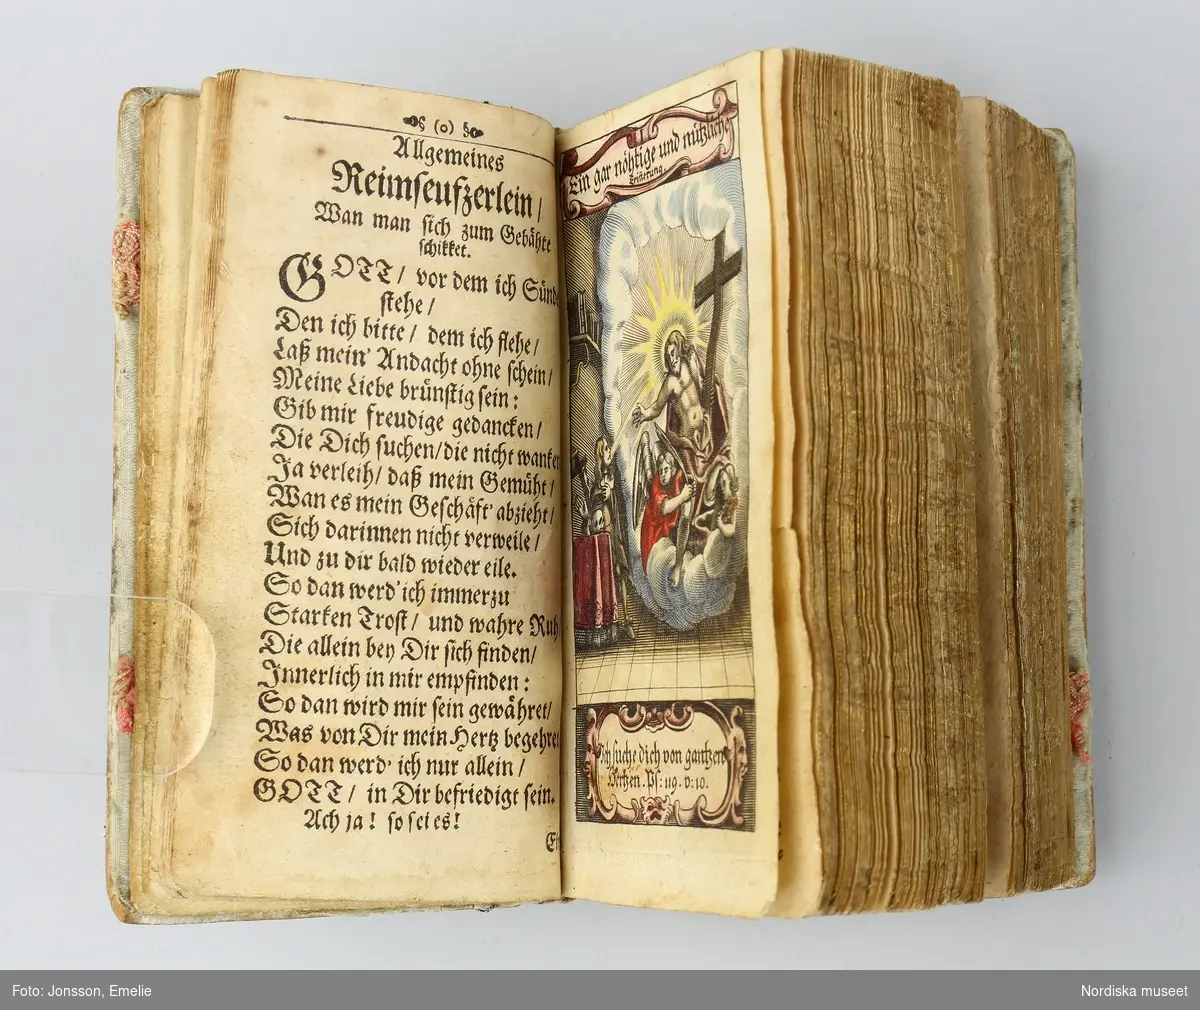 (o)
Allgemeines
Reimseufzerlein /
Wan man sich zum Gebähte
schikket.
GOTT / vor dem ich Sünd
stehe /
Den ich bitte / dem ich flehe /
Laß mein' Andacht ohne schein /
Meine Liebe brünstig sein:
Gib mir freudige gedancken /
Die Dich suchen / die nicht wanken
Ja verleih / daß mein Gemüht /
Wan es mein Geschäft' abzieht /
Sich darinnen nicht verweile /
Und zu dir bald wieder eile.
So dan werd' ich immerzu
Starken Trost / und wahre Ruh
Die allein bey Dir sich finden /
Innerlich in mir empfinden:
So dan wird mir sein gewähret /
Was von Dir mein Hertz begehret
So dan werd' ich nur allein /
GOTT / in Dir befriedigt sein.
Ach ja! so sei es!
Ein gar nöhtige und nützliche
Erinerung.
Ich suche dich von gantzen
Hertzen. Ps: 119. v: 10.
Foto: Jonsson, Emelie
Nordiska museet